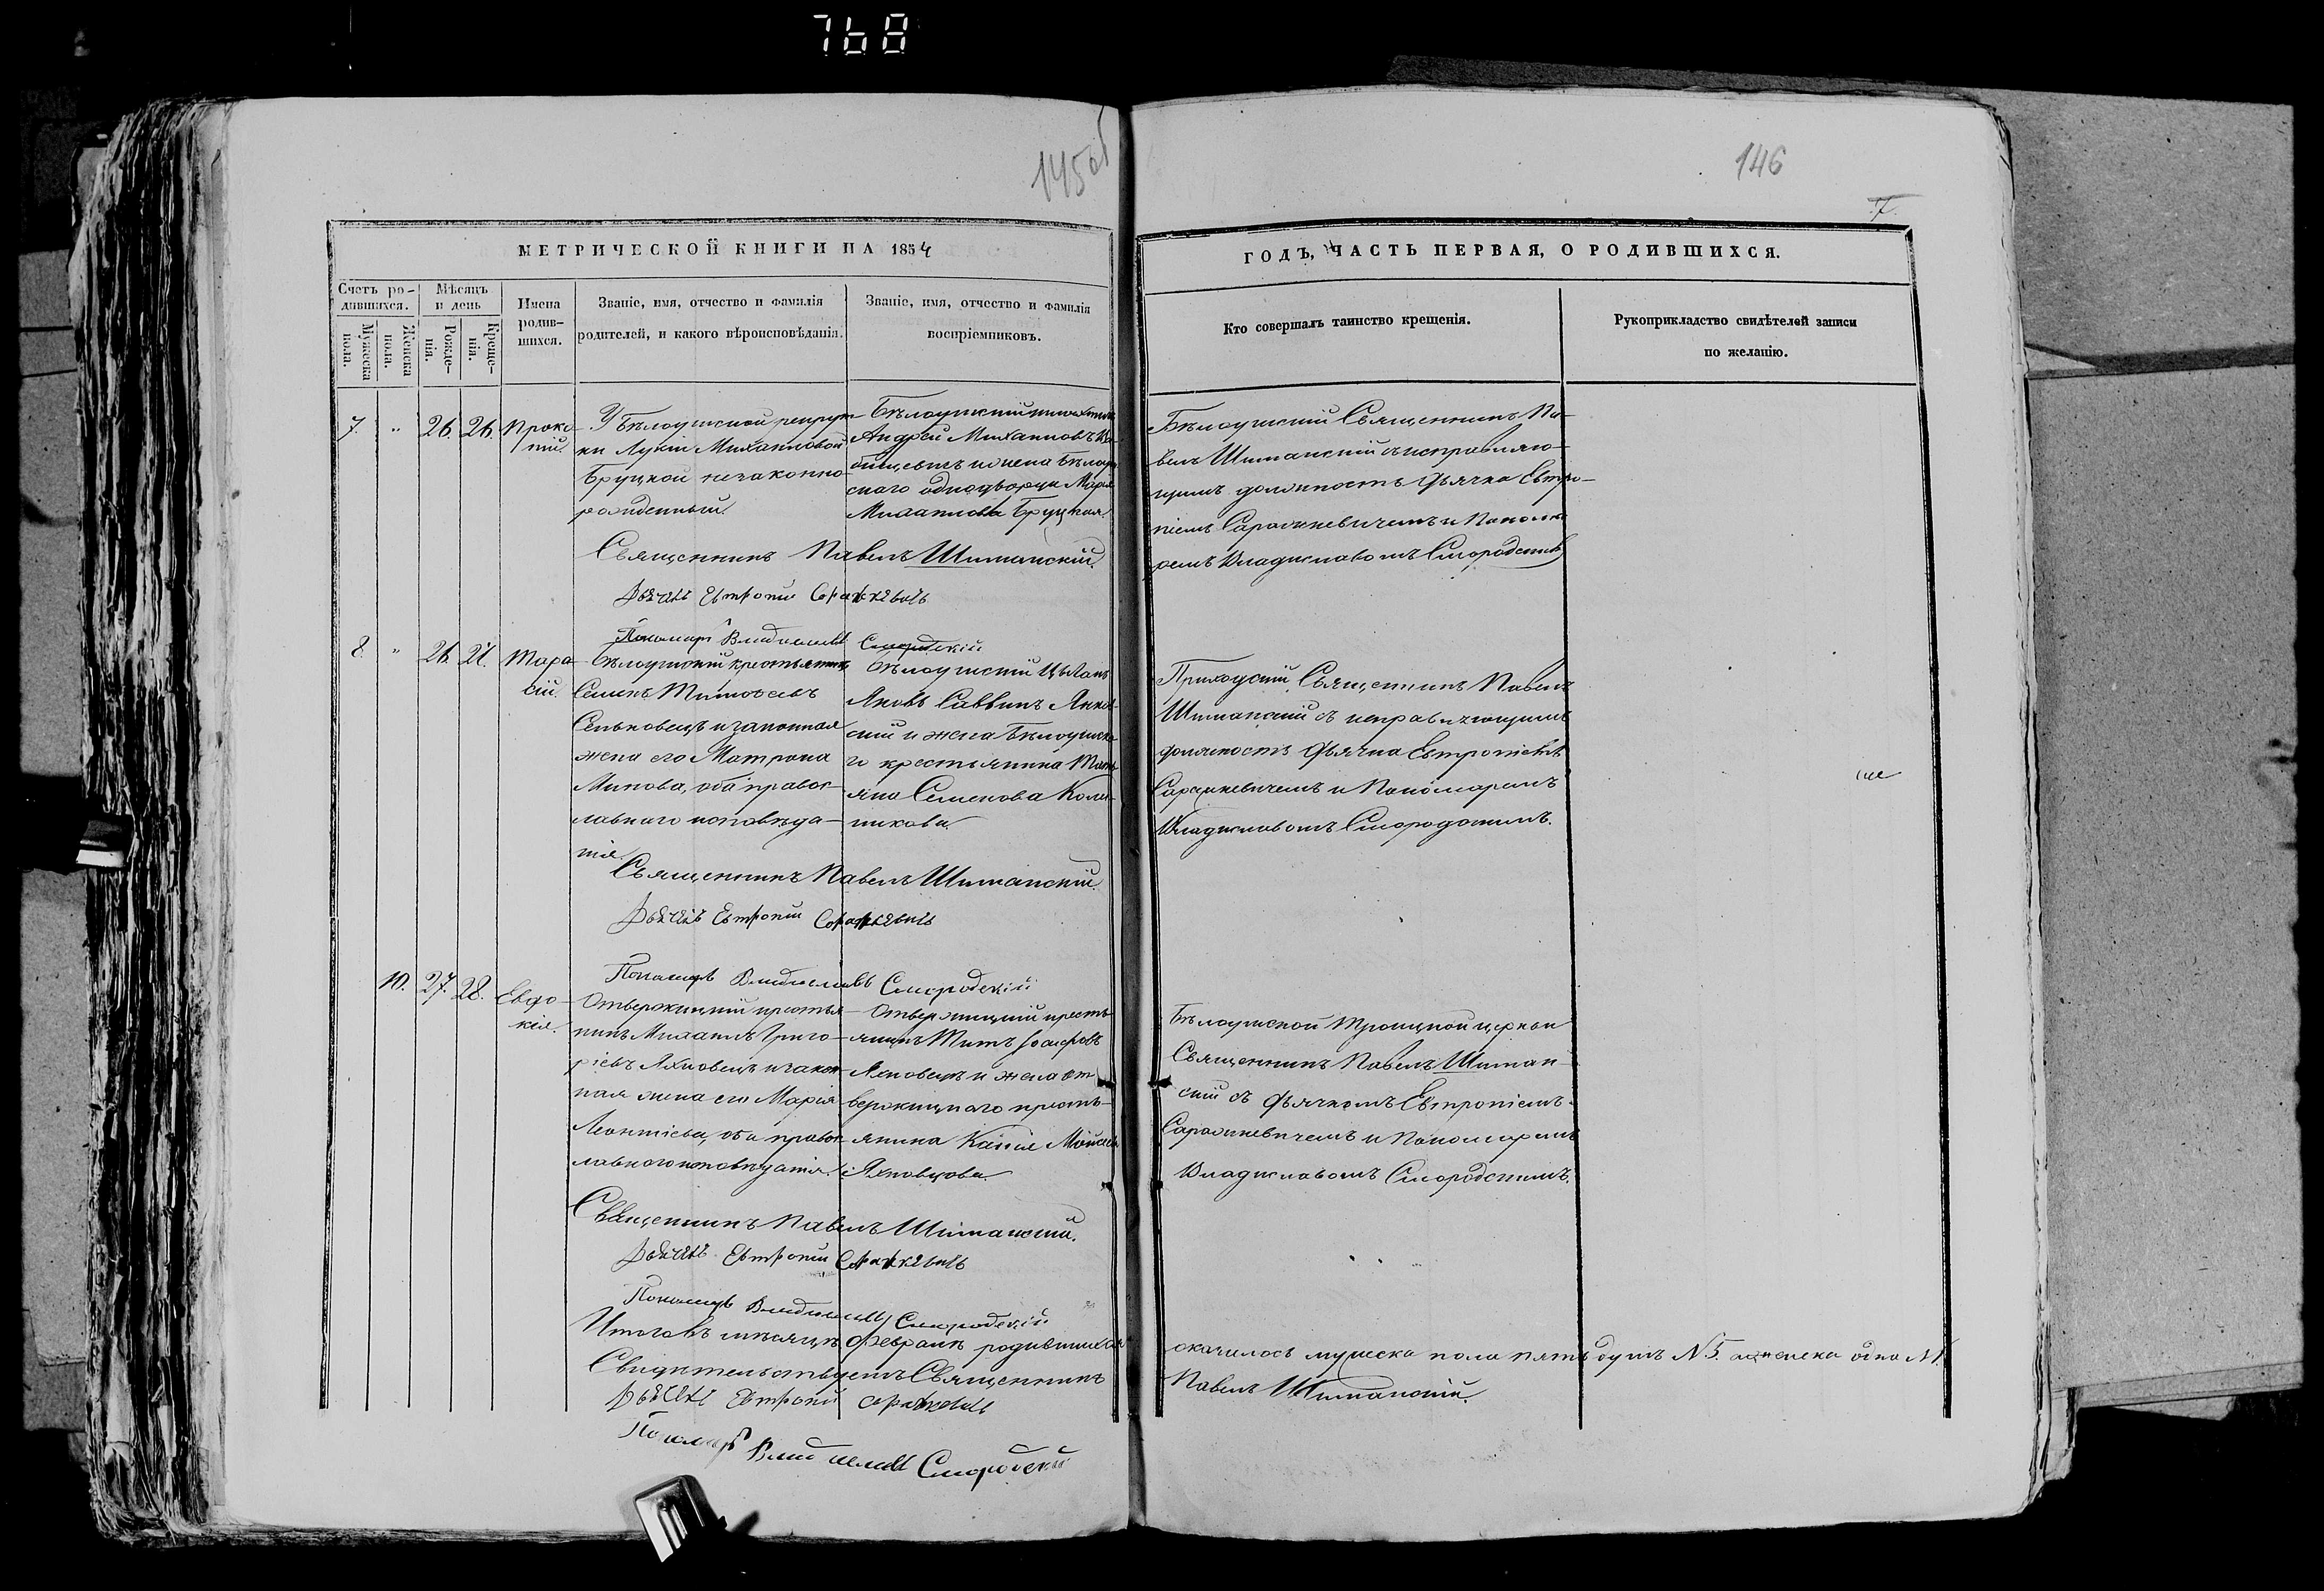 768
145об
146
7.
МЕТРИЧЕСКОЙ КНИГИ НА 1854
ГОДЪ, ЧАСТЬ ПЕРВАЯ, О РОДИВШИХСЯ.
Счетъ ро-
дившихся.
Мужеска пола.
Женска пола.
Мѣсяцъ
и день
Рожде-
нія.
Креще-
нія.
Имена
родив-
шихся.
Званіе, имя, отчество и фамилія
родителей, и какого вѣроисповѣданія.
Званіе, имя, отчество и фамилія
воспріемниковъ.
Кто совершалъ таинство крещенія.
Рукоприкладство свидѣтелей записи
по желанію.
7. " 26. 26. Проко-
пій.
У Бѣлоушской рекрут-
ки Лукіи Михаиловой
Бруцкой незаконно-
рожденный
Бѣлоушскій
Андрей Михаиловъ
и жена Бѣлоуш
скаго однодворца Марія
Михаилова Бруцкая.
Бѣлоушскій Священникъ Па-
велъ Шиманскій съ исправляю-
щимъ должность Дьячка Евтро-
піемъ Сорочкевичемъ и Понома
ремъ Владиславомъ Смородскимъ
Священникъ Павелъ Шиманскій.
Дьячекъ Евтропій
Пономарь Владиславъ Смородскій
8. " 26. 21. Тара-
сій.
Бѣлоушскій крестьянинъ
Семенъ Тимоѳеевъ
Сеньковецъ и законная
жена его Матрона
Минова, оба правос-
лавнаго исповѣда-
нія.
Бѣлоушскій
Яковъ Саввинъ
скій и жена Бѣлоушска
го крестьянина
яна Семенова
никова.
Приходскій Священникъ Павелъ
Шиманскій съ исправляющимъ
должность Дьячка Евтропіемъ
Сорочкевичемъ и Пономаремъ
Владиславомъ Смородскимъ.
Священникъ Павелъ Шиманскій.
Дьячекъ Евтропій
Пономарь Владиславъ Смородскій
10. 27. 28. Евдо-
кія.
Отвержицкій крестья-
нинъ Михаилъ Григо-
рьевъ Яхновецъ и закон
ная жена его Марія
Леонтіева, оба правос
лавнаго исповѣданія.
Отвержицкій кресть-
янинъ Титъ
Яхновецъ и жена От
вержицкаго кресть-
янина
Яхновцова.
Бѣлоушской Троицкой церкви
Священникъ Павелъ Шиман-
скій съ Дьячкомъ Евтропіемъ
Сорочкевичемъ и Пономаремъ
Владиславомъ Смородскимъ.
Священникъ Павелъ Шиманскій.
Дьячекъ Евтропій
Пономарь Владиславъ Смородскій
Итого въ мѣсяцѣ Февралѣ родившихся
оказалось мужеска пола пять душъ №5. а женска одна №1.
Свидѣтельствуетъ Священникъ
Павелъ Шиманскій.
Дьячекъ Евтропій
Пономарь Владиславъ Смородскій